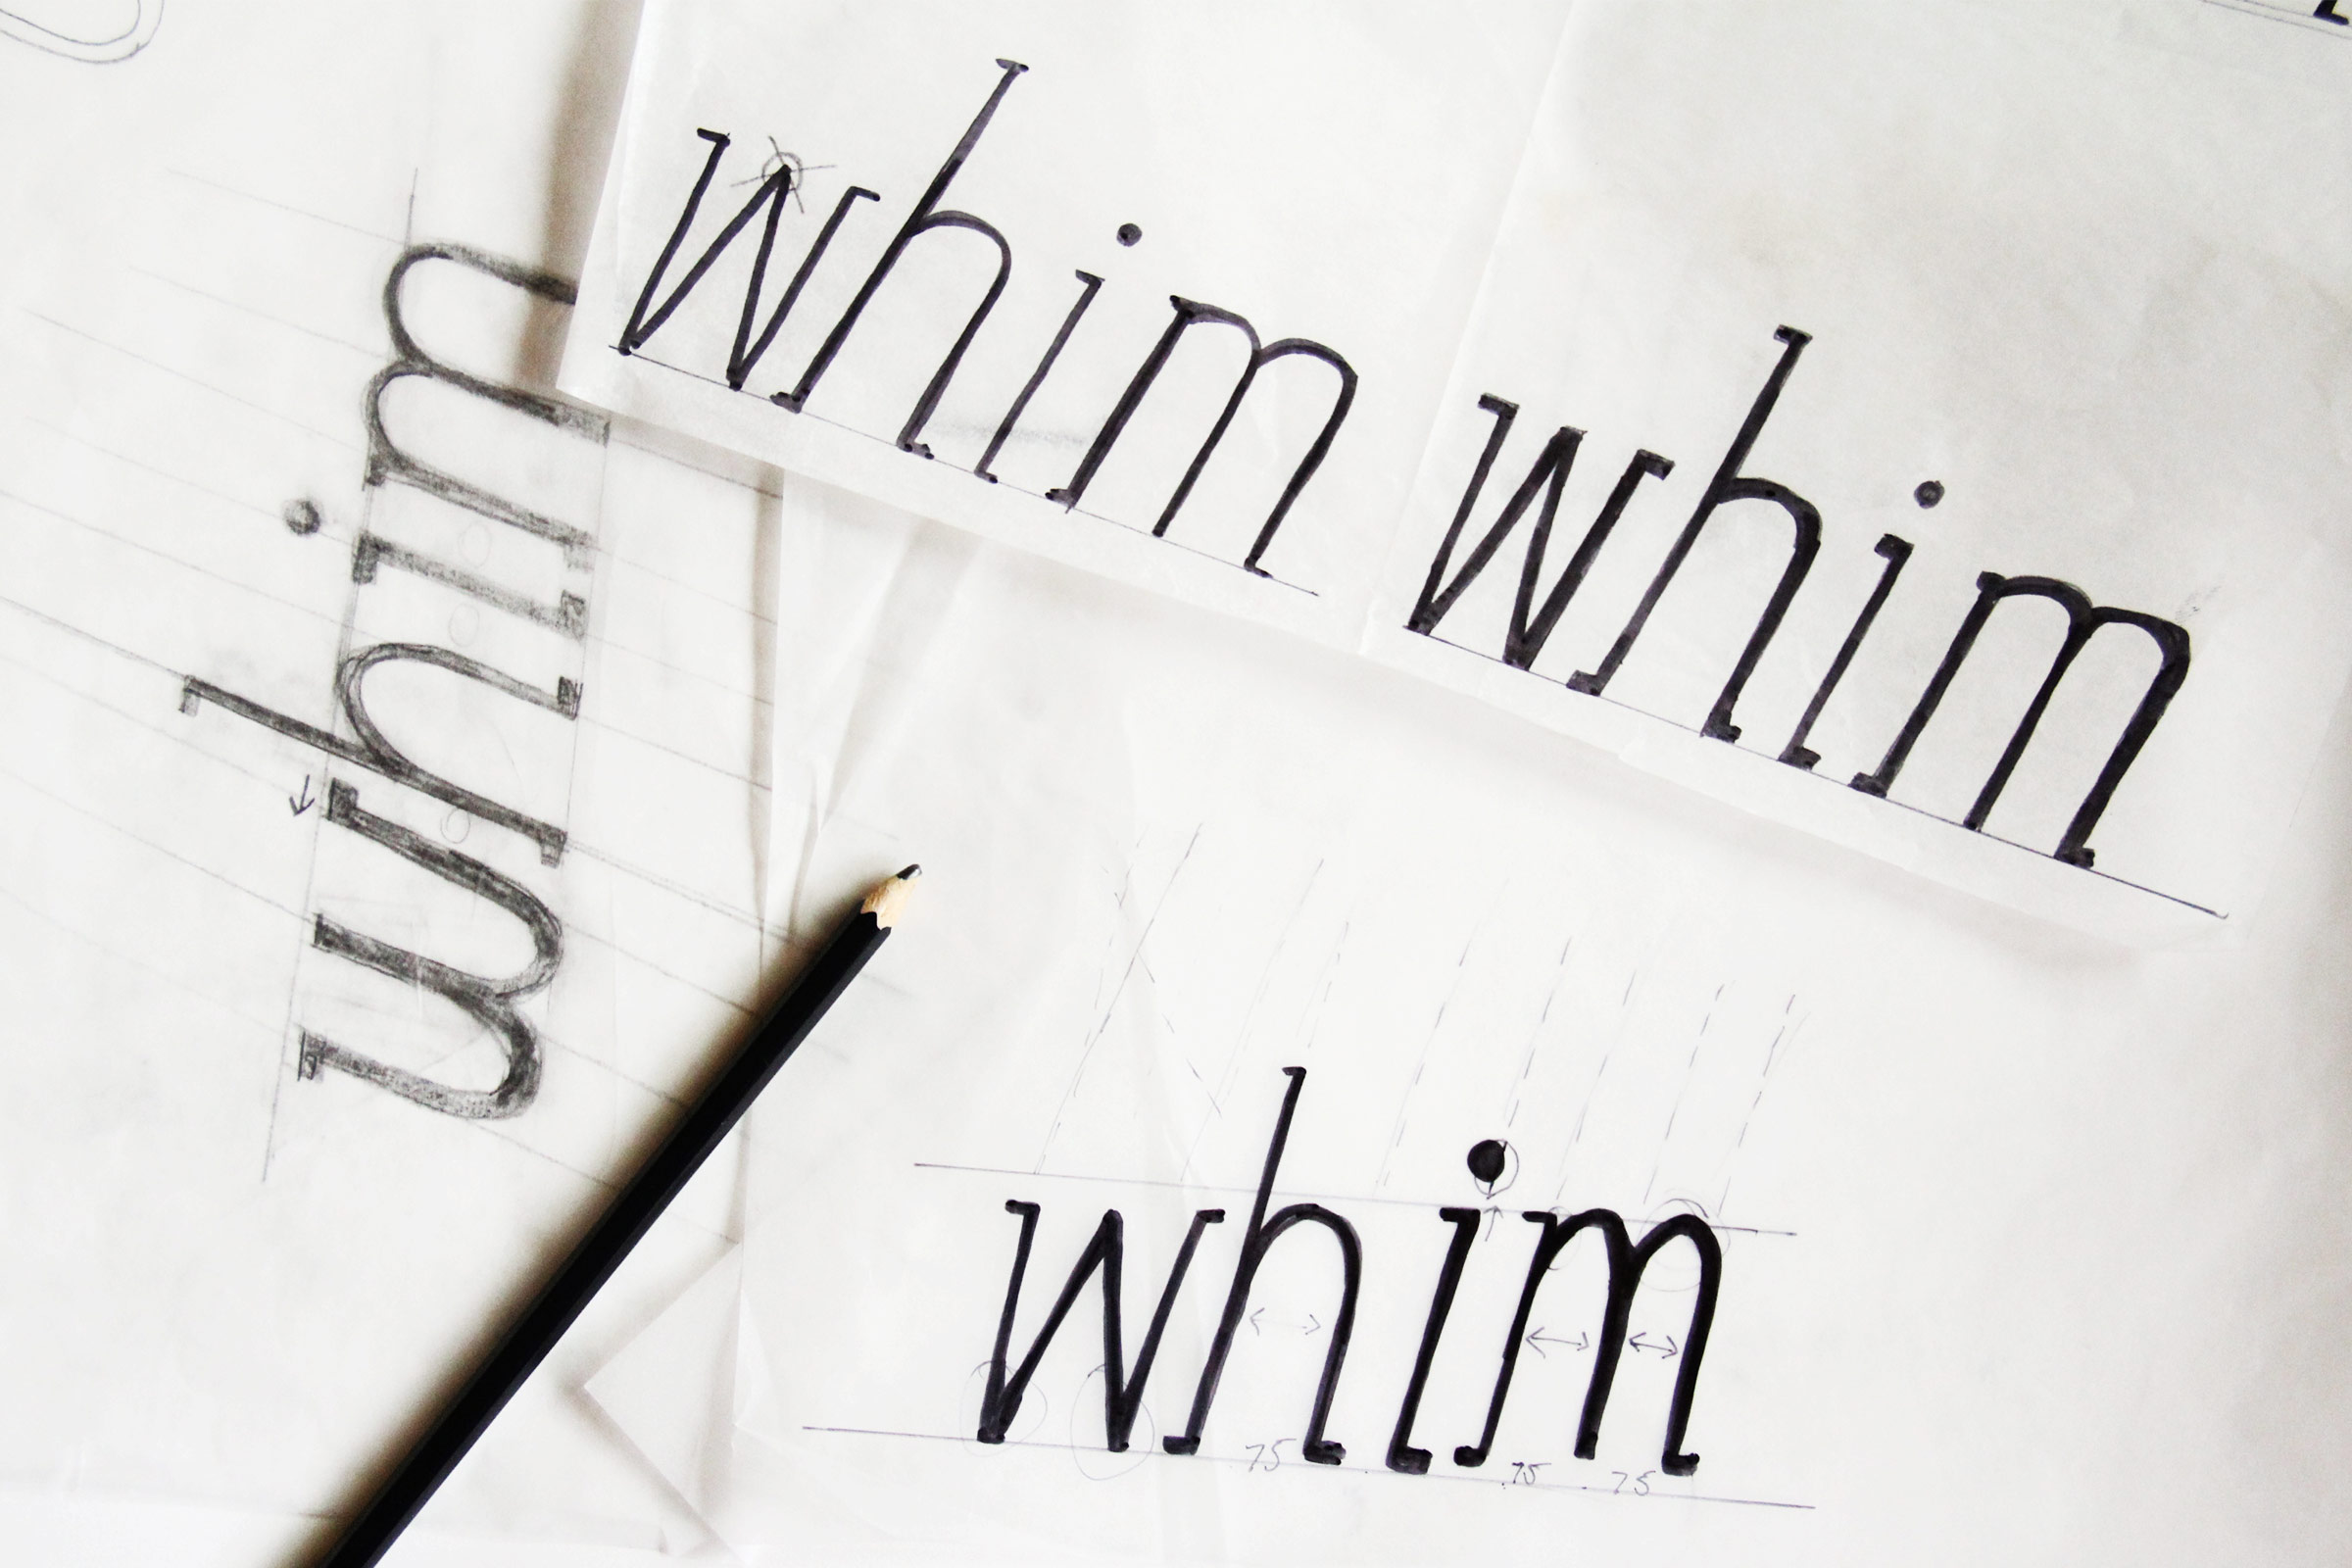 whim
whim
whim
whim
.75 .75 .75